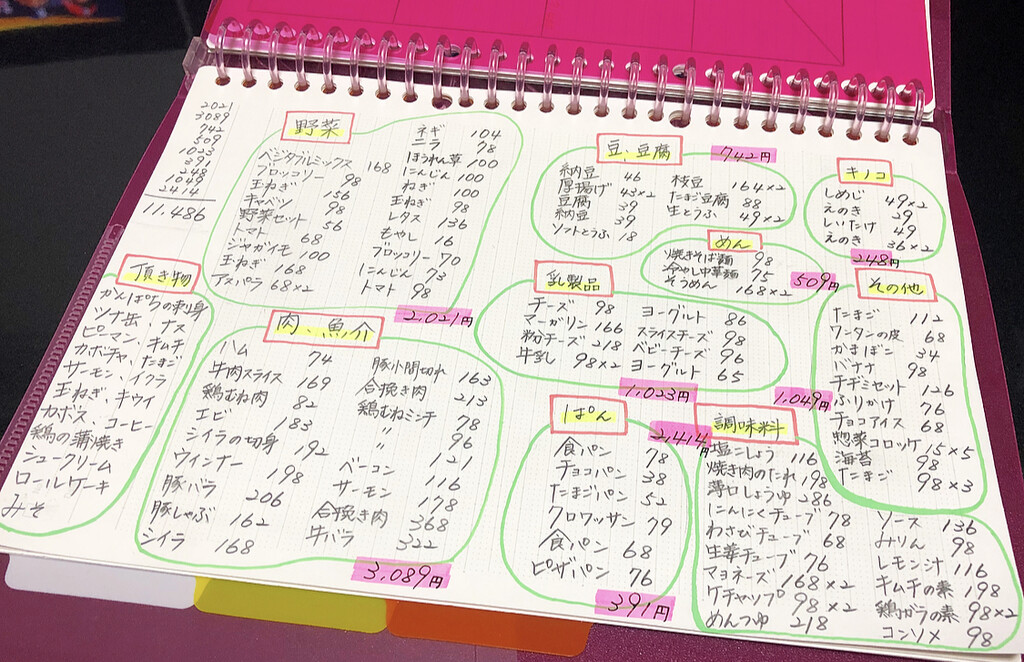 2021
3089
742
509
1023
391
248
1049
2414
11.486
野菜
ベジタブルミックス 168
ブロッコリー 98
玉ねぎ 156
キャベツ 98
野菜セット 56
トマト 68
ジャガイモ 100
玉ねぎ 168
アスパラ 68×2
ネギ 104
ニラ 78
ほうれん草 100
にんじん 100
ねぎ 100
玉ねぎ 98
レタス 136
もやし 16
ブロッコリー 70
にんじん 73
トマト 98
2,021円
豆、豆腐
742円
納豆 46
厚揚げ 43×2
豆腐 39
納豆 39
ソフトとうふ 18
枝豆 164×2
たまご豆腐 88
生とうふ 49×2
キノコ
しめじ 49×2
えのき 29
しいたけ 49
えのき 36×2
248円
めん
焼きそば麺 98
冷やし中華麺 75
そうめん 168×2
509円
頂き物
かんぱちの刺身
ツナ缶、ナス
ピーマン、キムチ
カボチャ、たまご
サーモン、イクラ
玉ねぎ、キウイ
カボス、コーヒー
鶏の蒲焼き
シュークリーム
ロールケーキ
みそ
肉、魚介
ハム 74
牛肉スライス 169
鶏むね肉 82
エビ 183
シイラの切身 192
ウィンナー 198
豚バラ 206
豚しゃぶ 162
シイラ 168
豚小間切れ 163
合挽き肉 213
鶏むねミンチ 78
〃 96
〃 121
ベーコン 116
サーモン 178
合挽き肉 368
牛バラ 322
3,089円
乳製品
チーズ 98
マーガリン 166
粉チーズ 218
牛乳 98×2
ヨーグルト 86
スライスチーズ 98
ベビーチーズ 96
ヨーグルト 65
1,023円
その他
たまご 112
ワンタンの皮 68
かまぼこ 34
バナナ 98
チヂミセット 126
ふりかけ 76
チョコアイス 68
惣菜コロッケ 15×5
海苔 98
たまご 98×3
1,049円
ぱん
食パン 78
チョコパン 38
たまごパン 52
クロワッサン 79
食パン 68
ピザパン 76
391円
調味料
2,414円
塩こしょう 116
焼き肉のたれ 198
薄口しょうゆ 286
にんにくチューブ 78
わさびチューブ 68
生姜チューブ 76
マヨネーズ 168×2
ケチャップ 98×2
めんつゆ 218
ソース 136
みりん 98
レモン汁 116
キムチの素 198
鶏ガラの素 98×2
コンソメ 98